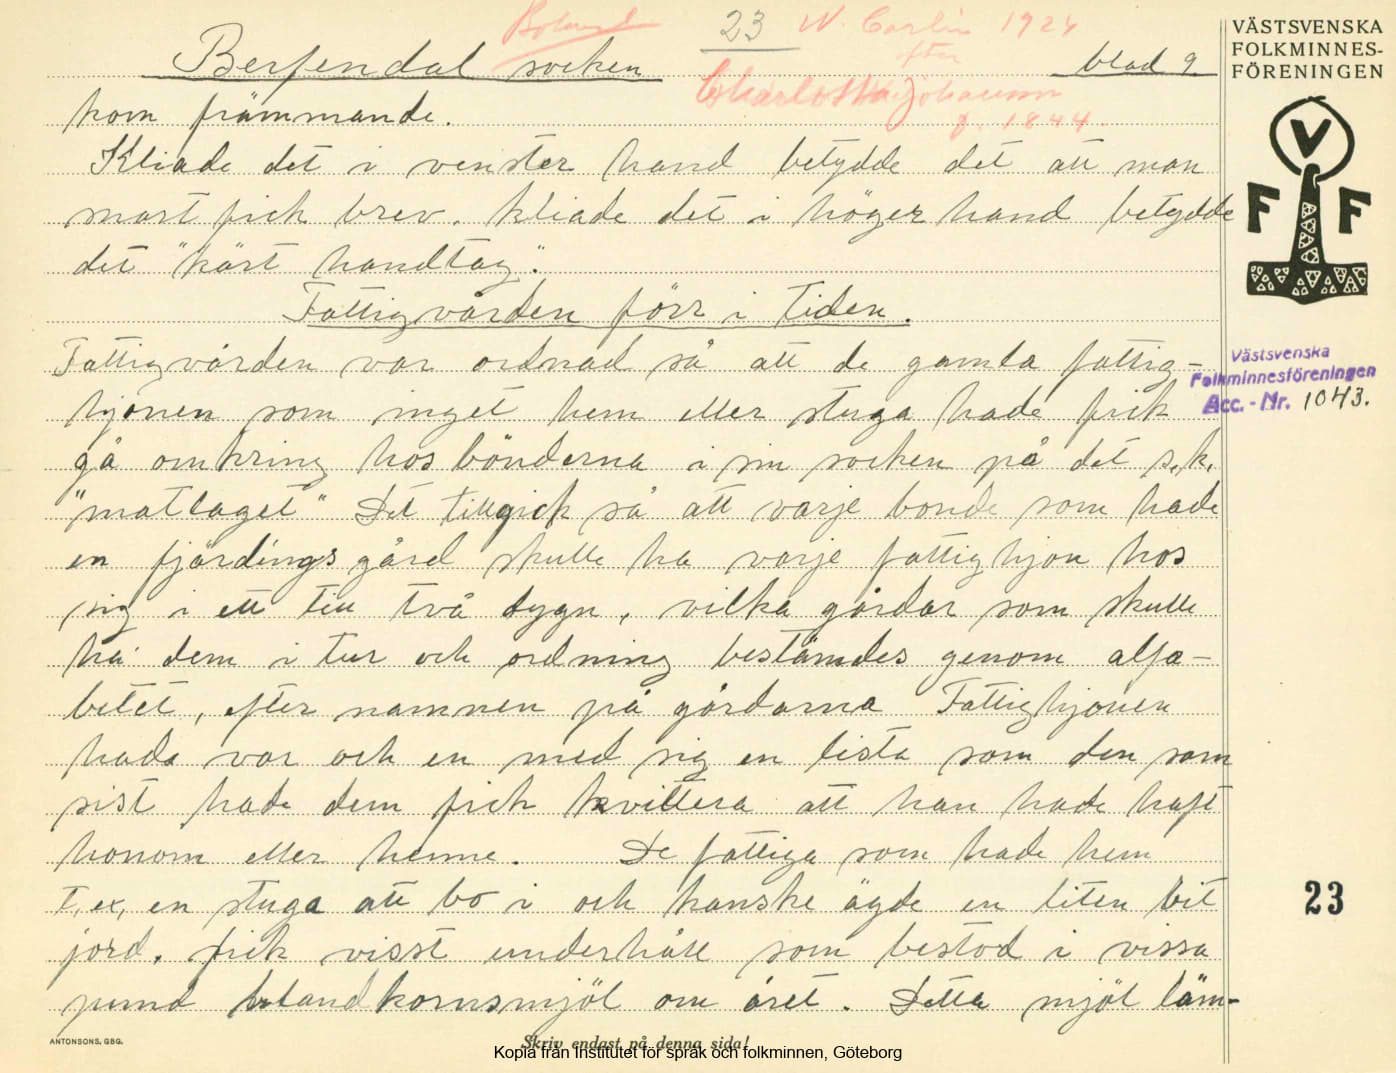 23 W. Carlin 1924
efter
Berfendal socken
blad 9
Charlotta Johansson
f. 1844.
kom främmande.
Kliade det i venster hand betydde det att man
snart fick brev. Kliade det i höger hand betydde
det "kärt handtag".
Fattigvården förr i tiden.
Fattigvården var ordnad så att de gamla fattig-
hjonen som inget hem eller stuga hade fick
gå omkring hos bönderna i sin socken på det s.k.
"matlaget" Det tillgick så att varje bonde som hade
en fjärdingsgård skulle ha varje fattighjon hos
sig i ett till två dygn, vilka gårdar som skulle
ha dem i tur och ordning bestämdes genom alfa-
betet, efter namnen på gårdarna Fattighjonen
hade var och en med sig en lista som den som
sist hade dem fick kvittera att han hade haft
honom eller henne. De fattiga som hade hem
t.ex. en stuga att bo i och kanske ägde en liten bit
jord, fick visst underhåll som bestod i vissa
pund blandkornsmjöl om året. Detta mjöl läm-
VÄSTSVENSKA
FOLKMINNES-
FÖRENINGEN
V
F F
Västsvenska
Folkminnesföreningen
Acc.-Nr. 1043.
23
ANTONSONS, GBG.
Skriv endast på denna sida!
Kopia från Institutet för språk och folkminnen, Göteborg